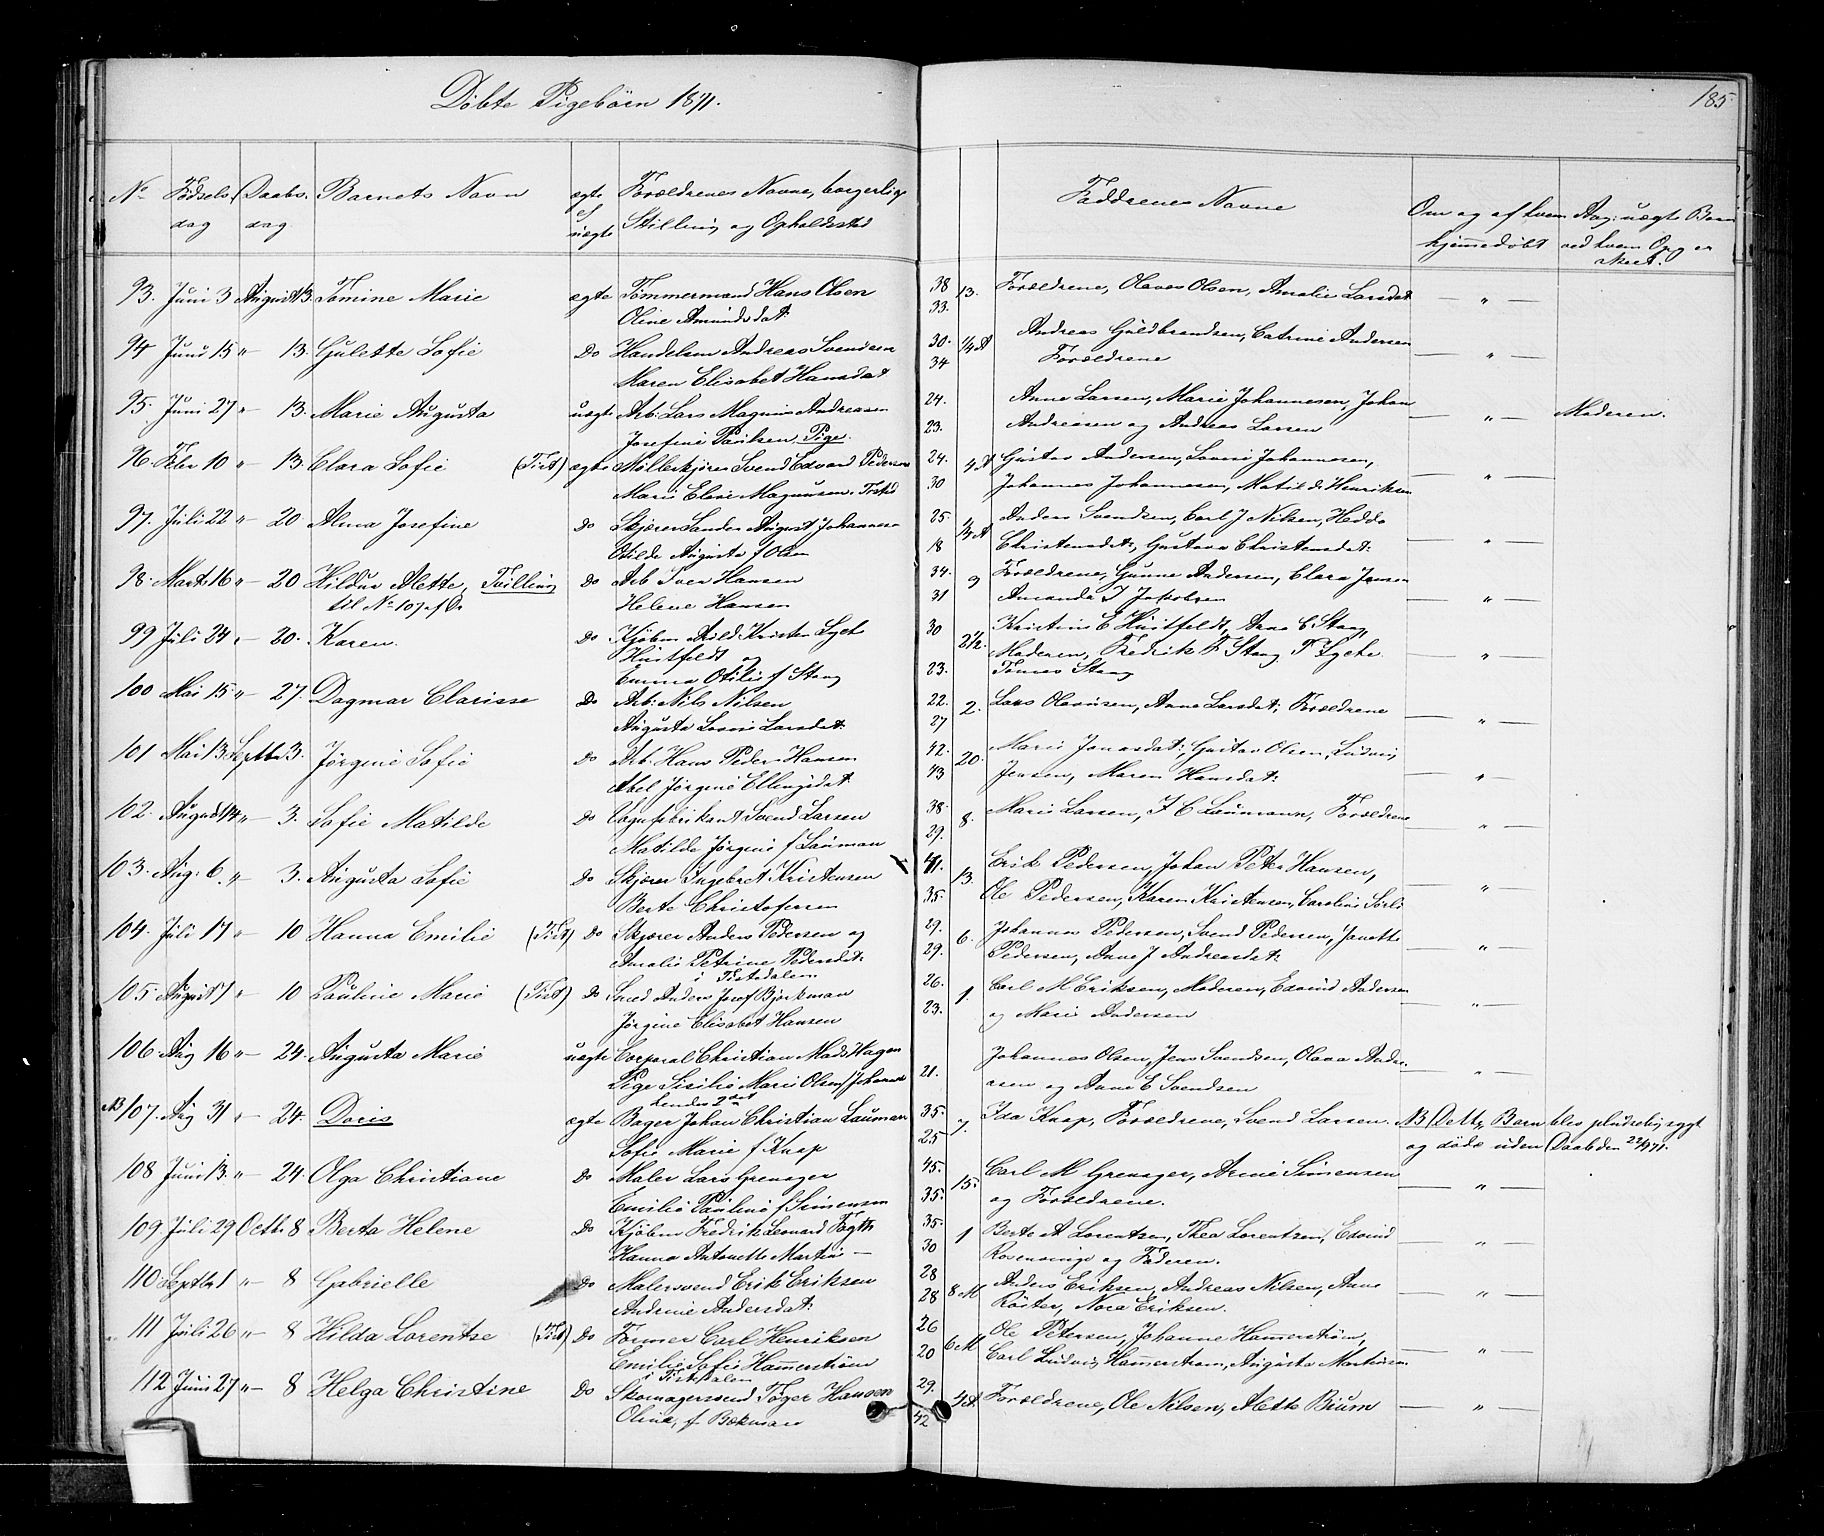 Døbte Pigebörn 1871.
185.
No Födsels dag Daabs dag Barnets Navn ægte el uægte Forældrenes Navne, borgerlige Stilling og Opholdssted Faddrenes Navne Om og af hvem hjemmedøbt Ang: uægte Barn ved hvem Opg er skeet.
93. Juni 3 August 13. Tomine Marie ægte Tømmermand Hans Olsen 38 13. Forældrene, Olaves Olsen, Amalie Larsdat — " —
Oline Amundsdat: 33.
94 Juni 15 " 13. Gulette Sofie Do Handelsm Andreas Svendsen 30. 1/4 A Andreas Guldbrandsen, Catrine Andersen
Maren Elisabet Hansdat 34 Forældrene — " —
95. Juni 27 " 13. Marie Augusta uægte Arb: Lars Magnus Andreasen 24. Anne Larsen, Marie Johannesen, Johan
Josefine Paulsen, Pige. 23. Andreasen og Andreas Larsen — " — Moderen.
96. Febr 10 " 13. Clara Sofie (Tist) ægte Møllerkjører Svend Edvard Pedersen 24. 4 A Gustav Andersen, Lovise Johannesen,
Marie Elise Magnusen. Tistd 30 Johannes Johannesen, Matilde Henriksen — " —
97. Juli 22 " 20 Alma Josefine Do Skjærer Sander August Johannesen 25. Anders Svendsen, Carl J Nilsen, Hedda
Otilde Augusta f Olsen 18 Christensdat:, Gustava Christensdat: — " —
98. Mart 16 " 20 Hildur Alette, Tvilling Do Arb Iver Hansen 34. 9 Forældrene, Gunne Andersen, Clara Jensen
til No 107 af Do Helene Hansen 31 Amanda J Jakobsen — " —
99 Juli 24 " 20. Karen. Do Kjøbm Arild Kristen Lyche 30 2 1/2. Kristine E Huitfeldt, Anne C Stang,
Huitfeldt og Moderen, Fredrik F Stang, T Lyche — " —
Emma Otilie f Stang 23. Tønnes Stang
100 Mai 15 " 27. Dagmar Clarisse Do Arb: Nils Nilsen 22. 2. Lars Olavesen, Anne Larsdat; Forældrene
Augusta Lovise Larsdat: 27 — " —
101 Mai 13. Septbr 3. Jørgine Sofie Do Arb. Hans Peder Hansen 42. 20. Marie Jonasdat:, Gustav Olsen, Ludvig
Abel Jørgine Ellingsdat 43 Jensen, Maren Hansdat: — " —
102. August 14 " 3. Sofie Matilde Do Vognfabrikant Svend Larsen 38. 8. Marie Larsen, J C Laumann, Forældrene
Matilde Jørgine f Lauman 29. — " —
103. Aug. 6 " 3. Augusta Sofie Do Skjærer Ingebret Kristensen 41. 13. Erik Pedersen, Johan Peter Hansen,
Berte Christofersen 35. Ole Pedersen, Karen Kristensen, Caroline Sørli — " —
104. Juli 17 " 10 Hanna Emilie (Tist) Do Skjærer Anders Pedersen og 29. 6. Johannes Pedersen, Svend Pedersen, Janette
Amalie Petrine Pedersdat: 29. Pedersen, Anne J Andreasdat: — " —
i Tistedalen
105. August 7 " 10 Pauline Marie (Tist) Do Smed Anders Josef Bjørkman 26. 1. Carl M Eriksen, Moderen, Edvind Andersen
Jørgine Elisabet Hansen 23. og Marie Andersen — " —
106. Aug 16 " 24. Augusta Marie uægte Corporal Christian Mads Hagen Johannes Olsen, Jens Svendsen, Olava Andre-
Pige Sisilie Marie Olsen Johannes 21. sen og Anne E Svendsen — " —
hendes 2det
NB 107. Aug 31 " 24. Doris ægte Bager Johan Christian Lauman 35. 7. Ida Knap, Forældrene, Svend Larsen. NB Dette Barn blev pludselig sygt
Sofie Marie f Knap 25 og døde uden Daab den 22/9 71.
108 Juni 13. " 24. Olga Christiane Do Maler Lars Grenager 45. 15. Carl M Grenager, Arnie Simensen
Emilie Pauline f Simensen 35. og Forældrene. — " —
109 Juli 29 Octb. 8 Berta Helene Do Kjøbm Fredrik Leonard Fogth 35. 1 Berte A Lorentzen, Thea Lorentzen, Edvind
Hanna Antonette Martine — 30 Rosensvinge og Faderen. — " —
110 Septbr 1 " 8 Gabrielle Do Malersvend Erik Eriksen 28 8 M Anders Eriksen, Andreas Nilsen, Anne
Andrine Andersdat: 28 Röiter, Nora Eriksen. — " —
111 Juli 26 " 8 Hilda Lorentse (Tist) Do Former Carl Henriksen 26 6 M Ole Petersen, Johanne Hammerstrøm,
Emilie Sofie Hammerstrøm 20 Carl Ludvig Hammerstrøm, Augusta Martinsen — " —
i Tistedalen
112 Juni 27 " 8 Helga Christine Do Skomagersvend Tøger Hansen 29. 4 A Forældrene, Ole Nilsen, Alette Bium — " —
Oline, f. Bekman 42